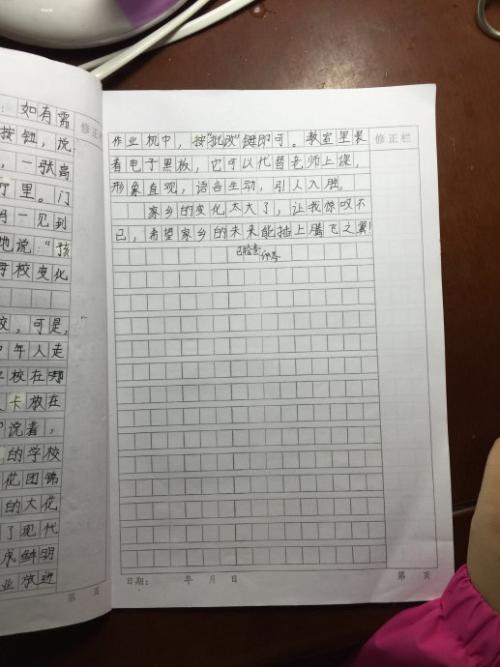 ：如有需
按钮，说
，一张高
厅里。门
一见到
地说："孩
母校变化
校，可是，
年人走
校在
卡放在
"说着，
的学校
花团锦
的大花
了现代
鲜明
业放进
第 页
修正栏
作业机中，按"批改"键即可。教室里装
着电子黑板，它可以代替老师上课，
形象直观，语言生动，引人入胜。
家乡的变化太大了，让我惊叹不
已，希望家乡的未来能插上腾飞之翼！
已检查
修正栏
日期： 年 月 日
第 页